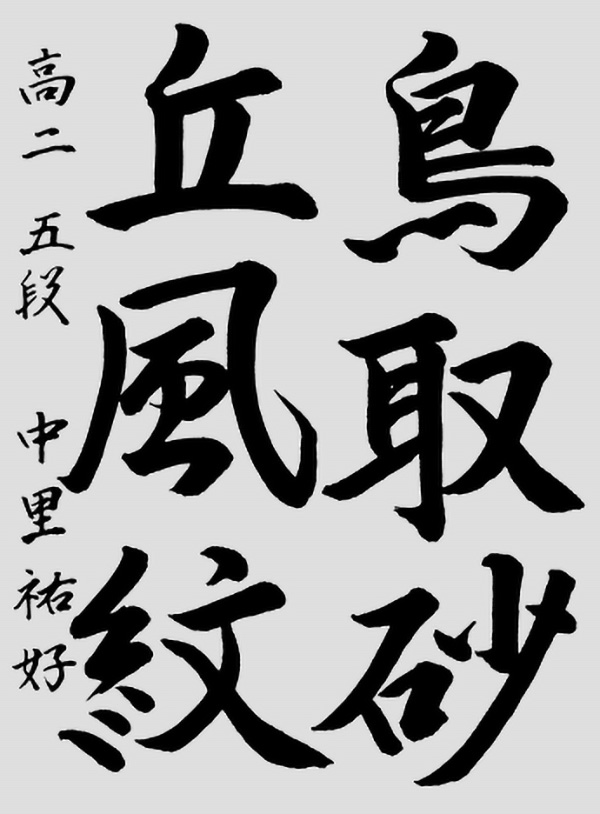 鳥取砂
丘風紋
高二 五段 中里祐好